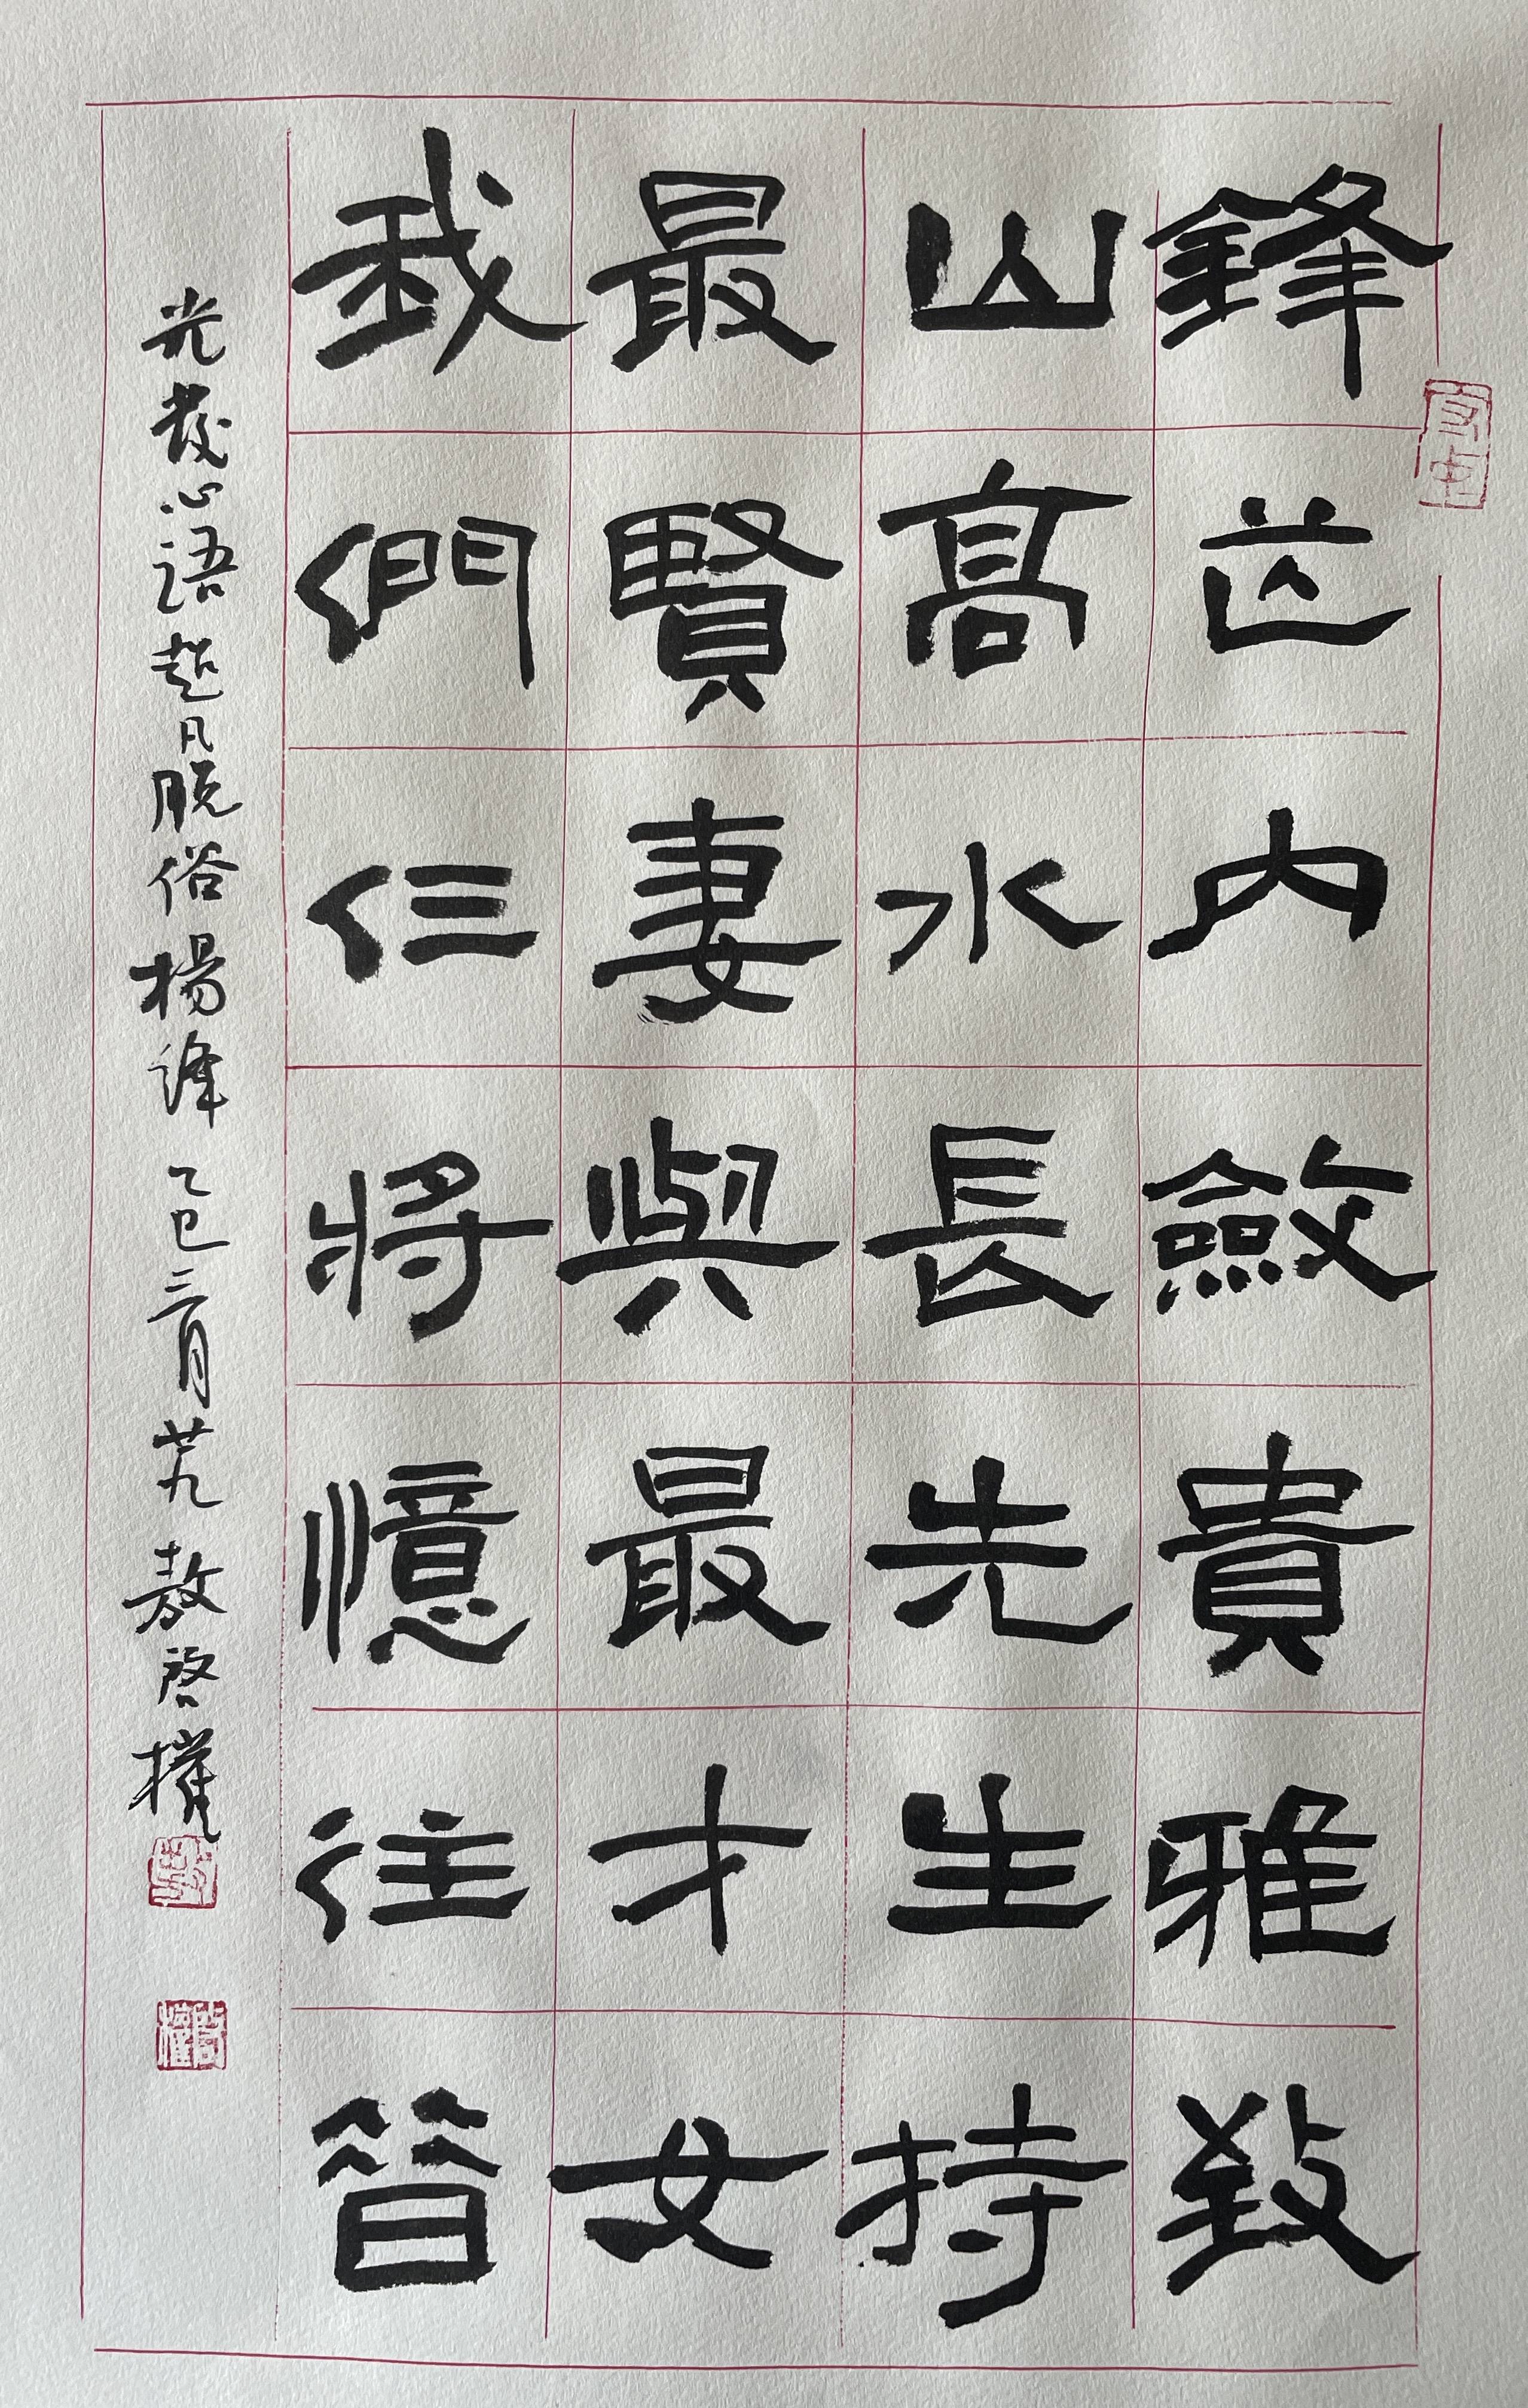 鋒芒內斂貴雅致
山高水長先生持
最賢妻與最才女
我們仨將憶往昔
光發心語超凡脫俗楊諱乙巳三月廿九敖啓權